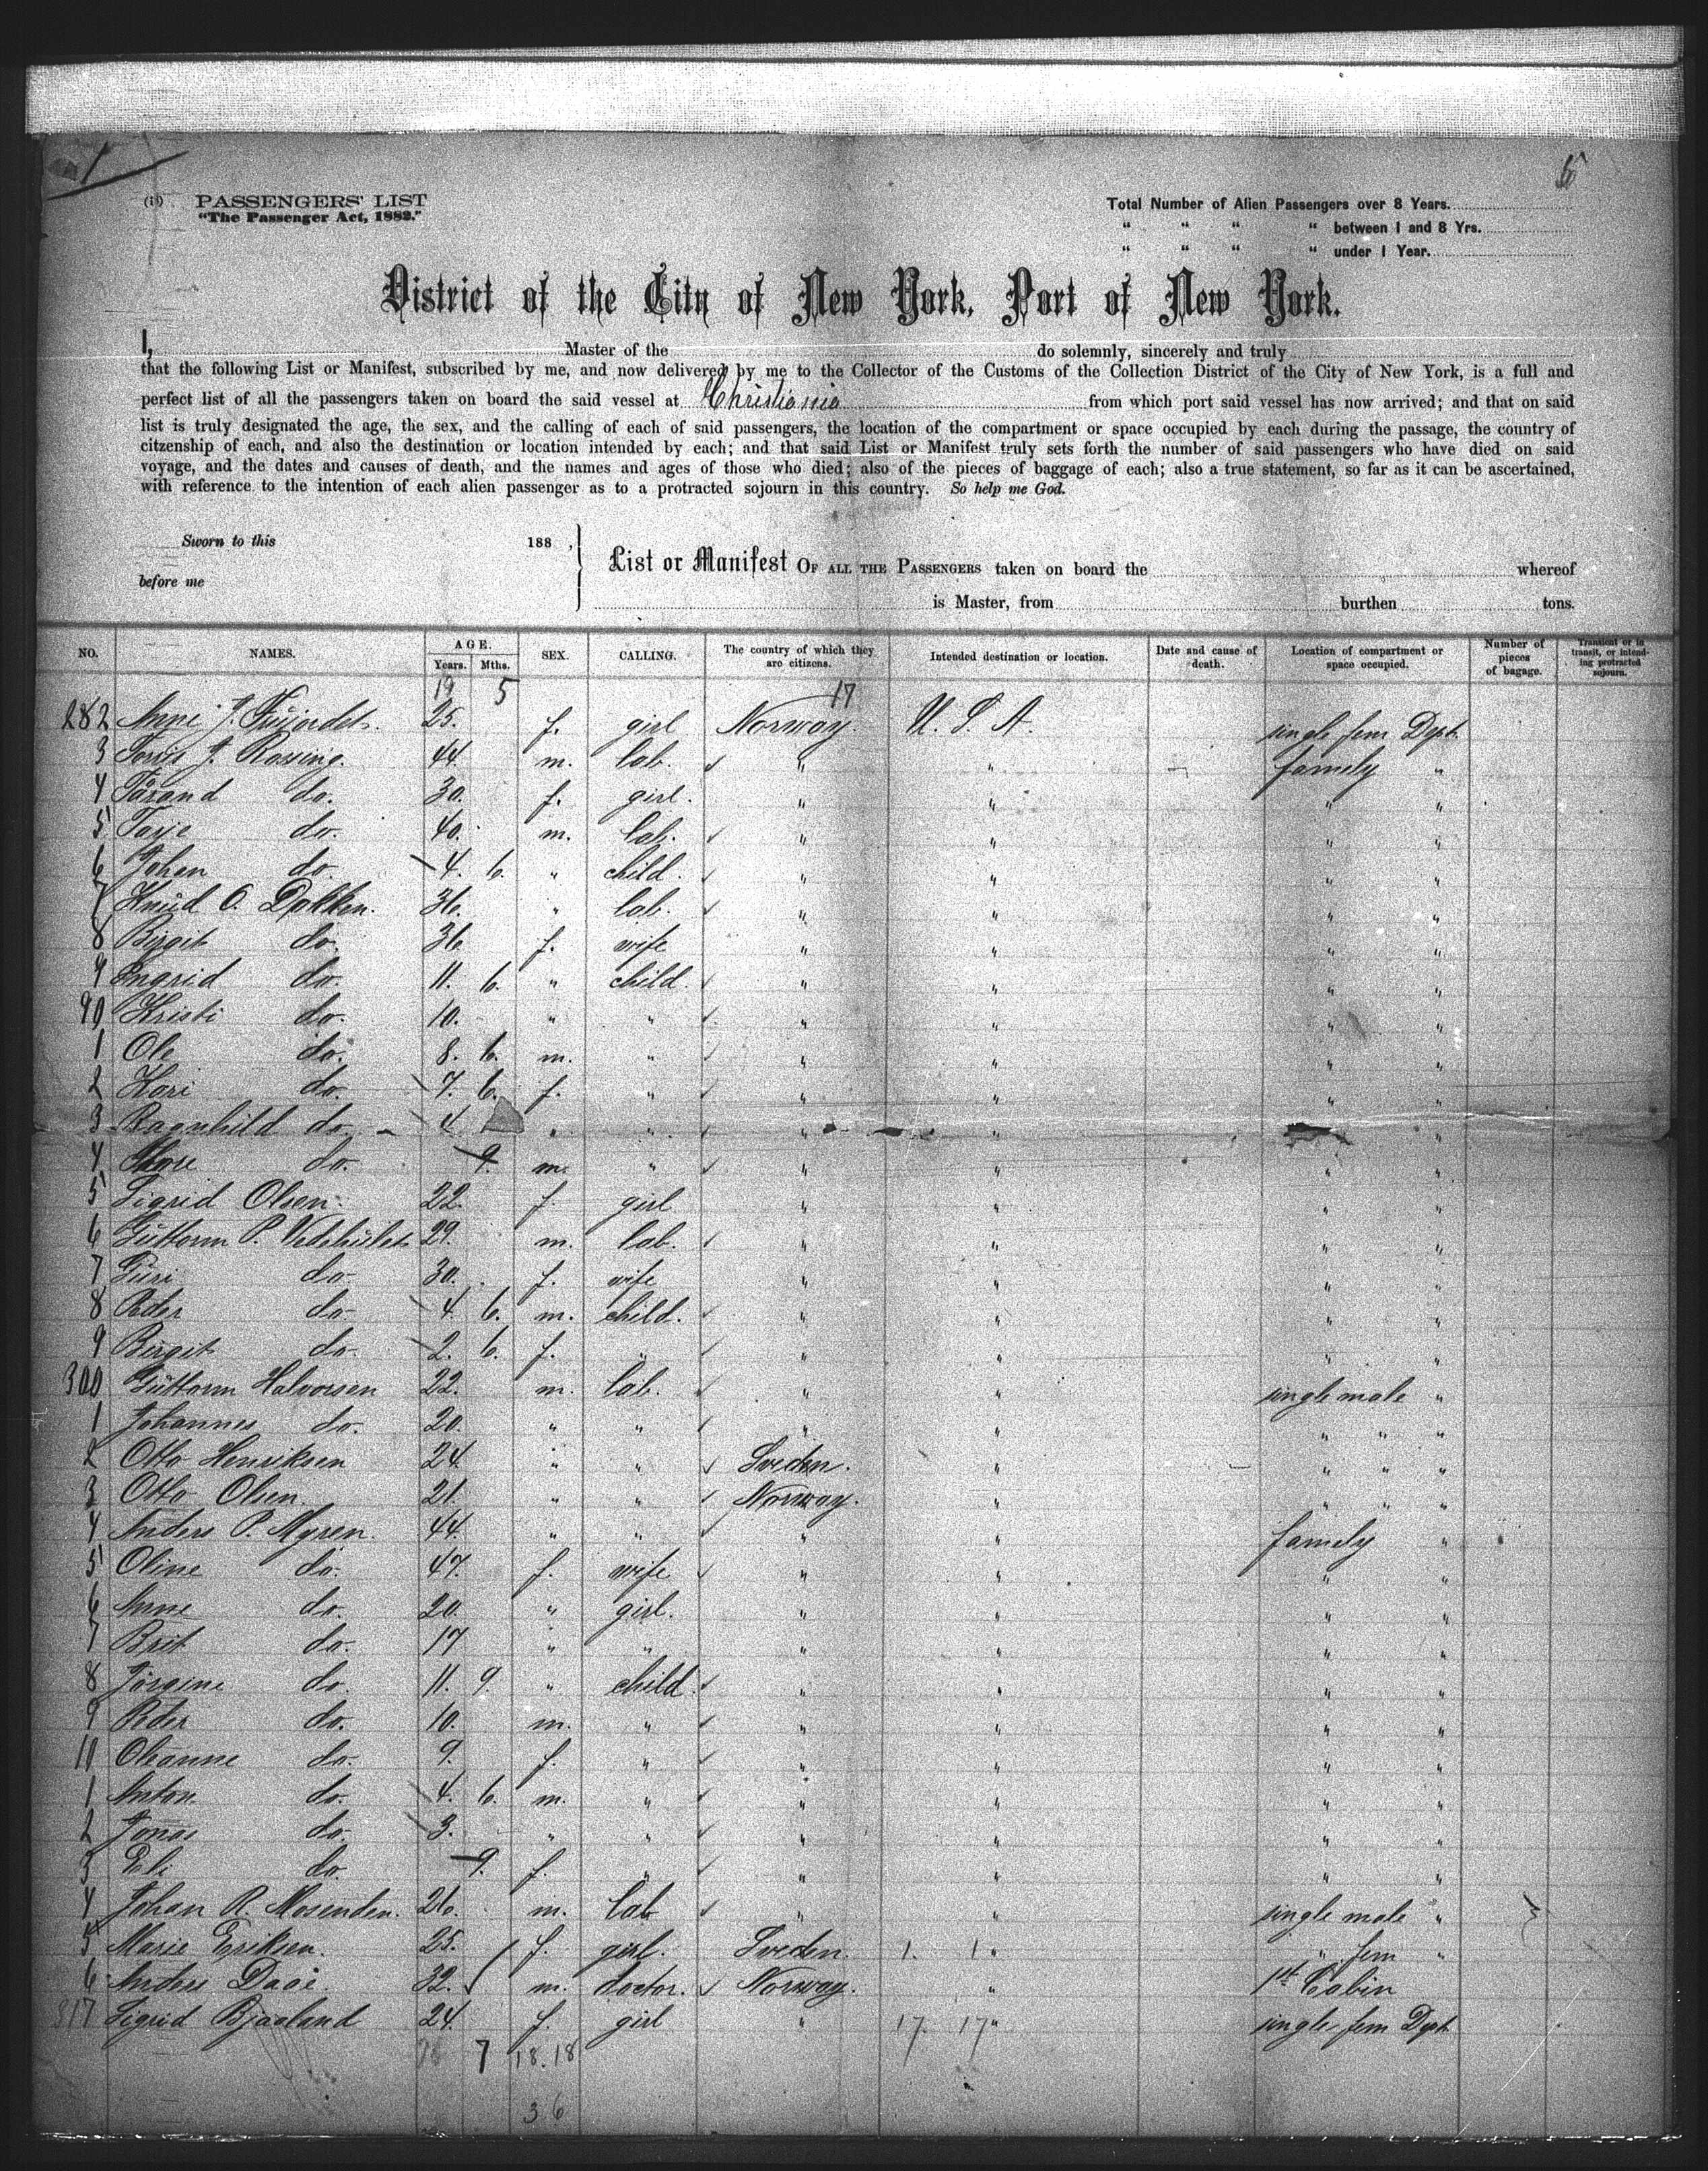 1
5
(1) PASSENGERS' LIST
"The Passenger Act, 1882."
Total Number of Alien Passengers over 8 Years.
" " " " between 1 and 8 Yrs.
" " " " under 1 Year.
District of the City of New York, Port of New York.
I, Master of the do solemnly, sincerely and truly
that the following List or Manifest, subscribed by me, and now delivered by me to the Collector of the Customs of the Collection District of the City of New York, is a full and
perfect list of all the passengers taken on board the said vessel at Christiania from which port said vessel has now arrived; and that on said
list is truly designated the age, the sex, and the calling of each of said passengers, the location of the compartment or space occupied by each during the passage, the country of
citzenship of each, and also the destination or location intended by each; and that said List or Manifest truly sets forth the number of said passengers who have died on said
voyage, and the dates and causes of death, and the names and ages of those who died; also of the pieces of baggage of each; also a true statement, so far as it can be ascertained,
with reference to the intention of each alien passenger as to a protracted sojourn in this country. So help me God.
Sworn to this 188 ,
before me
List or Manifest OF ALL THE PASSENGERS taken on board the whereof
is Master, from burthen tons.
NO. NAMES. AGE. Years. Mths. SEX. CALLING. The country of which they are citizens. Intended destination or location. Date and cause of death. Location of compartment or space occupied. Number of pieces of bagage. Transient or in transit, or intending protracted sojourn.
19 5 17
282 Anne J. 25. f. girl Norway. U. S. A. single fem Dept.
3 J. Rossing. 44. m. lab. " " family "
4 do. 30. f. girl. " " " "
5 Tarje do. 40. m. lab. " " " "
6 Johan do. 4. 6. " child. " " " "
7 Knud O. Dokken. 36. " lab. " " " "
8 Birgit do. 36 f. wife " " " "
9 Ingrid do. 11. 6. " child. " " " "
90 Kristi do. 10. " " " " " "
1 Ole do. 8. 6. m. " " " " "
2 Kari do. 7. 6. f. " " " " "
3 Ragnhild do. 4. " " " " "
4 do. 9. m. " " " " "
5 Sigrid Olsen. 22. f. girl " " " "
6 Guttorm P. 29. m. lab. " " " "
7 Guri do. 30. f. wife " " " "
8 Peder do. 4. 6. m. child. " " " "
9 Birgit do. 2. 6. f. " " " " "
300 Guttorm Halvorsen 22. m. lab. " " single male "
1 Johannes do. 20. " " " " " " "
2 Otto Henriksen 24. " " Sveden. " " " "
3 Otto Olsen 21. " " Norway. " " " "
4 Anders P. Myren. 44. " " " " family "
5 Oline do. 47. f. wife " " " "
6 Anne do. 20. " girl. " " " "
7 Brit do. 17 " " " " " "
8 Jörgine do. 11. 9. " child. " " " "
9 Peder do. 10. m. " " " " "
10 Ohanne do. 9. f. " " " " "
1 Anton do. 4. 6. m. " " " " "
2 Jonas do. 3. " " " " " "
3 Eli do. 9. f. " " " " "
4 Johan R. Mosenden. 26. m. lab " " single male "
5 Marie Eriksen. 25. f. girl. Sveden. 1. 1 " " fem "
6 Anders Daae. 32. m. doctor. Norway. " 1st Cabin
317 Sigrid Bjaaland 24. f. girl " 17. 17 " single fem Dept.
7 18. 18
36